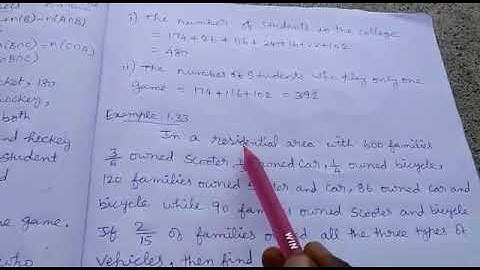 n(B)-n(A∩B)
n(B∩C) = n(C∩A)
B∩C)
cket, 180
both
student
e game.
who
i) The number of students in the college
= 174+26+116+
= 480
ii) The number of students who play only one
game = 174+116+102 = 392
Example: 1.33
In a residential area with 600 families
3/5 owned scooter, 1/3 owned car, 1/4 owned bicycle,
120 families owned scooter and car, 86 owned car and
bicycle while 90 families owned scooter and bicycle
If 2/15 of families owned all the three types of
vehicles, then find
WIN